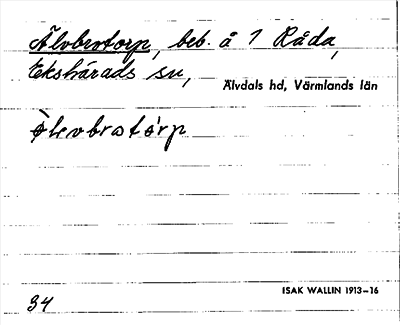 Älvbrotorp, beb. å 7 Råda,
Ekshärads sn,
Älvdals hd, Värmlands län
ISAK WALLIN 1913–16
34